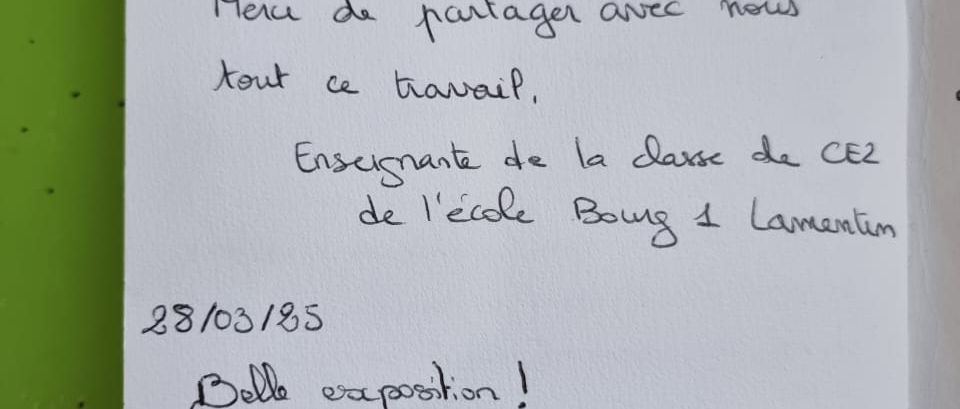 Merci de partager avec nous
tout ce travail.
Enseignante de la classe de CE2
de l'école Bourg 1 Lamentin
28/03/25
Belle exposition !